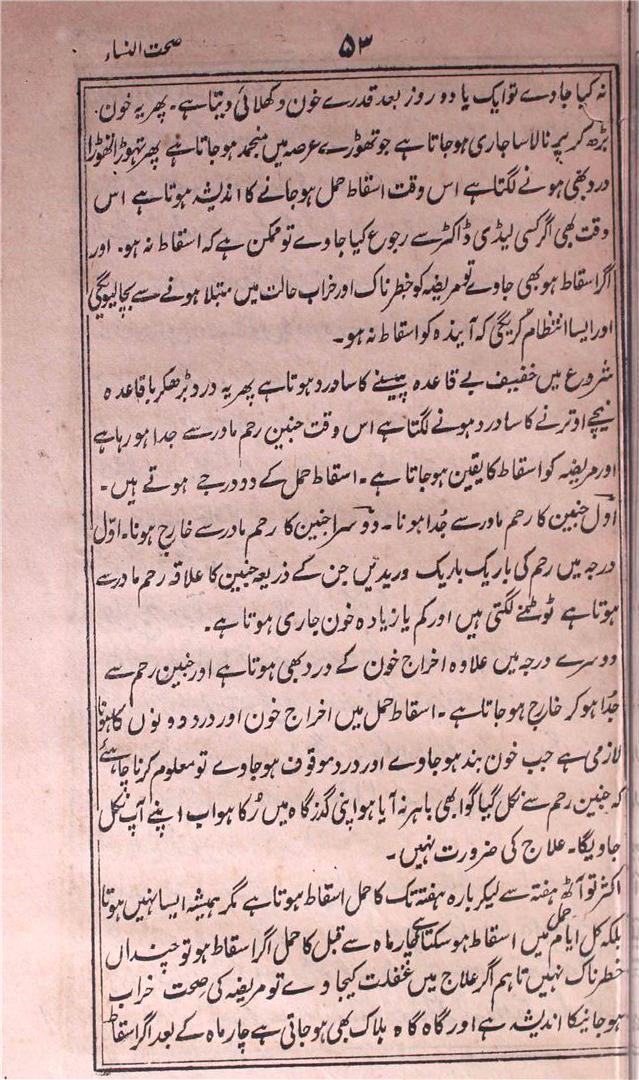 ۵۳ صحت النساء
نہ کیا جاوے تو ایک یا دو روز بعد قدرے خون دکھلائی دیتا ہے۔ پھر یہ خون
بڑھ کر پرنالا سا جاری ہو جاتا ہے جو تھوڑے عرصہ میں منجمد ہو جاتا ہے پھر تہوڑا تھوڑا
درد بھی ہونے لگتا ہے اس وقت اسقاط حمل ہو جانے کا اندیشہ ہوتا ہے اس
وقت بھی اگر کسی لیڈی ڈاکٹر سے رجوع کیا جاوے تو ممکن ہے کہ اسقاط نہ ہو۔ اور
اگر اسقاط ہو بھی جاوے تو مریضہ کو خطرناک اور خراب حالت میں مبتلا ہونے سے بچا لیویگی
اور ایسا انتظام کریگی کہ آیندہ کو اسقاط نہ ہو۔
شروع میں خفیف بے قاعدہ پیسنے کا سا درد ہوتا ہے پھر یہ درد بڑھکر باقاعدہ
نیچے اوترنے کا سا درد ہونے لگتا ہے اس وقت جنین رحم مادر سے جدا ہو رہا ہے
اور مریضہ کو اسقاط کا یقین ہو جاتا ہے۔ اسقاط حمل کے دو درجے ہوتے ہیں۔
اول جنین کا رحم مادر سے جُدا ہونا۔ دوسرا جنین کا رحم مادر سے خارج ہونا۔ اوّل
درجہ میں رحم کی باریک باریک وریدیں جن کے ذریعہ جنین کا علاقہ رحم مادر سے
ہوتا ہے ٹوٹنے لگتی ہیں اور کم یا زیادہ خون جاری ہوتا ہے۔
دوسرے درجہ میں علاوہ اخراج خون کے درد بھی ہوتا ہے اور جنین رحم سے
جُدا ہو کر خارج ہو جاتا ہے۔ اسقاط حمل میں اخراج خون اور درد دونوں کا ہونا
لازمی ہے جب خون بند ہو جاوے اور درد موقوف ہو جاوے تو معلوم کرنا چاہئے
کہ جنین رحم سے نکل گیا گو ابھی باہر نہ آیا ہو اپنی گذرگاہ میں رُکا ہو اب اپنے آپ نکل
جاویگا۔ علاج کی ضرورت نہیں۔
اکثر تو آٹھ ہفتہ سے لیکر بارہ ہفتہ تک کا حمل اسقاط ہوتا ہے مگر ہمیشہ ایسا نہیں ہوتا
بلکہ کل ایام حمل میں اسقاط ہو سکتا ہے چار ماہ سے قبل کا حمل اگر اسقاط ہو تو چنداں
خطرناک نہیں تاہم اگر علاج میں غفلت کیجاوے تو مریضہ کی صحت خراب
ہو جانیکا اندیشہ ہے اور گاہ گاہ ہلاک بھی ہو جاتی ہے چار ماہ کے بعد اگر اسقاط